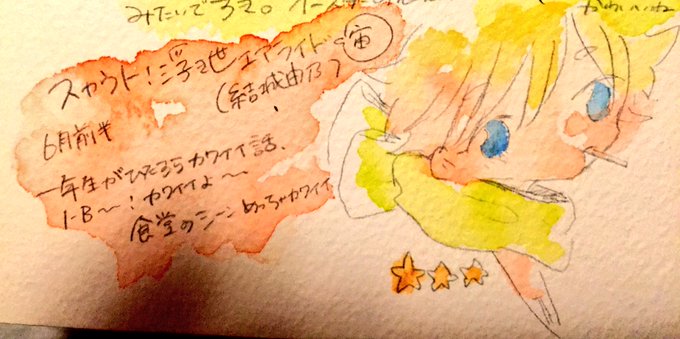 みたいで好き。
かわいいね
スカウト！浮世エアライド 宙
(結城由乃)
6月前半
一年生がひたすらカワイイ話、
1-B〜！カワイイよ〜
食堂のシーンめっちゃカワイイ